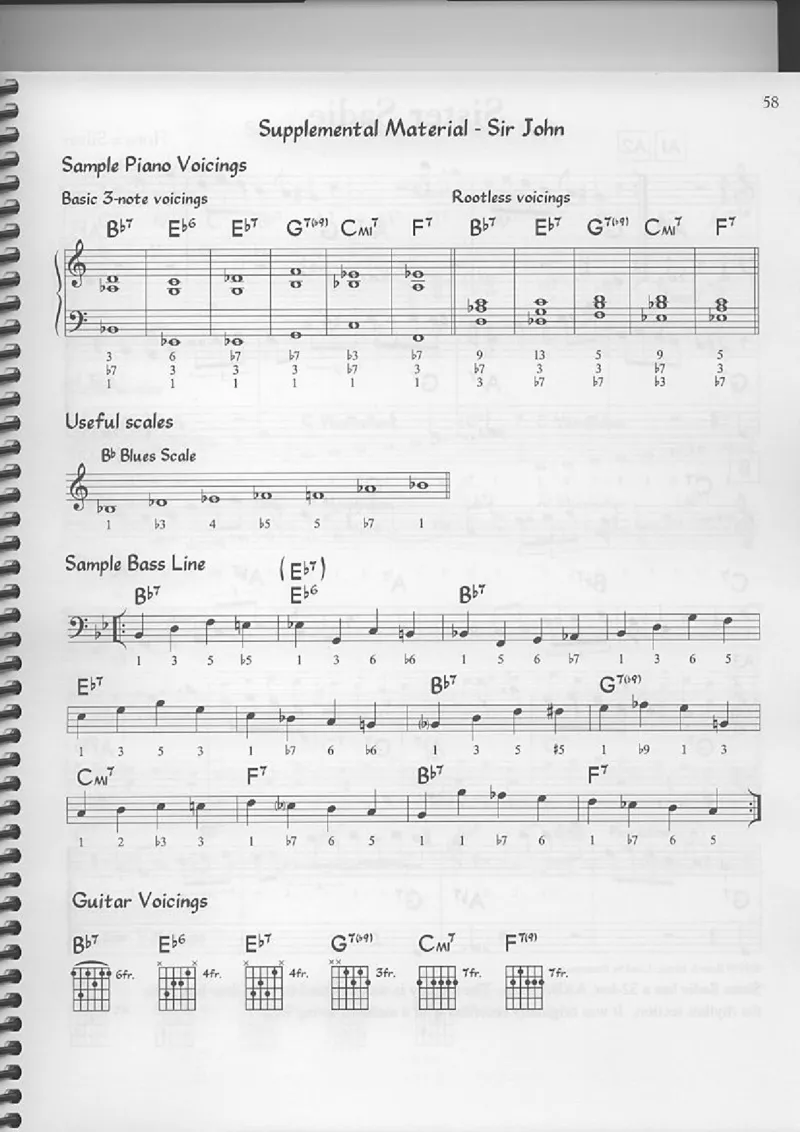 58
Supplemental Material - Sir John
Sample Piano Voicings
Basic 3-note voicings Rootless voicings
B♭7 E♭6 E♭7 G7(♭9) CMI7 F7 B♭7 E♭7 G7(♭9) CMI7 F7
3 6 ♭7 ♭7 ♭3 ♭7 9 13 5 9 5
♭7 3 3 3 ♭7 3 ♭7 3 3 ♭7 3
1 1 1 1 1 1 3 ♭7 ♭7 ♭3 ♭7
Useful scales
B♭ Blues Scale
1 ♭3 4 ♭5 5 ♭7 1
Sample Bass Line
(E♭7)
B♭7 E♭6 B♭7
1 3 5 ♭5 1 3 6 ♭6 1 5 6 ♭7 1 3 6 5
E♭7 B♭7 G7(♭9)
1 3 5 3 1 ♭7 6 ♭6 1 3 5 #5 1 ♭9 1 3
CMI7 F7 B♭7 F7
1 2 ♭3 3 1 ♭7 6 5 1 1 ♭7 6 1 ♭7 6 5
Guitar Voicings
B♭7 E♭6 E♭7 G7(♭9) CMI7 F7(9)
6fr. 4fr. 4fr. 3fr. 7fr. 7fr.